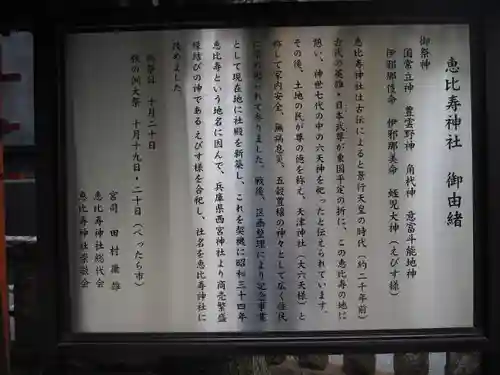 恵比寿神社 御由緒
御祭神
国常立神 豊雲野神 角杙神 意富斗能地神
伊邪那岐命 伊邪那美命 蛭児大神（えびす様）
恵比寿神社は古伝によると景行天皇の時代（約二千年前）
古代の英雄・日本武尊が東国平定の折に、この恵比寿の地に
憩い、神世七代の中の六天神を祀ったと伝えられています。
その後、土地の民が尊の徳を称え、天津神社（大六天様）と
称して家内安全、無病息災、五穀豊穣の神々として広く住民
に崇め祀われて参りました。戦後、区画整理により記念事業
として現在地に社殿を新築し、これを契機に昭和三十四年
恵比寿という地名に因んで、兵庫県西宮神社より商売繁盛
縁結びの神であるえびす様を合祀し、社名を恵比寿神社に
改めました。
例祭日 十月二十日
秋の例大祭 十月十九日・二十日（べったら市）
宮司 田村
恵比寿神社総代会
恵比寿神社崇敬会